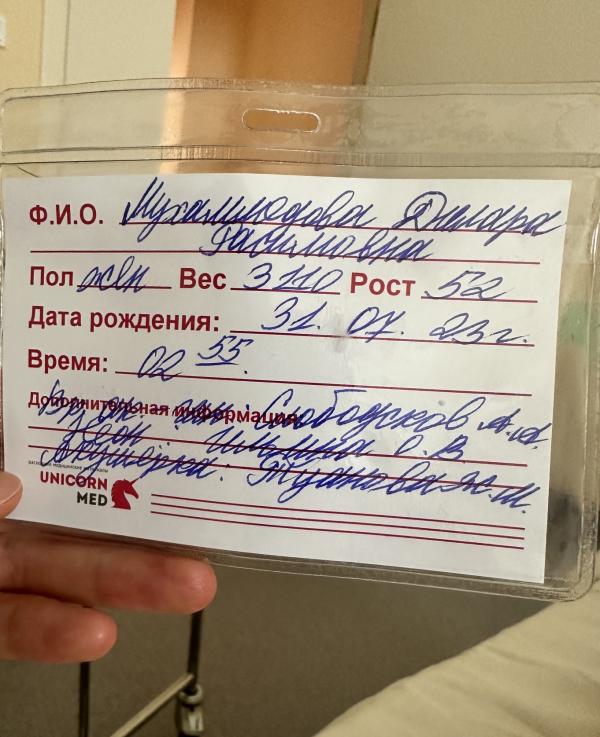 Ф.И.О. Мухаммедова Дилара
Расимовна
Пол жен Вес 3110 Рост 52
Дата рождения: 31. 07. 23 г.
Время: 02 55.
Дополнительная информация:
Врач гин: Слободсков А.А.
Неон: О.В
Акушерка: Ж.М.
UNICORN
MED